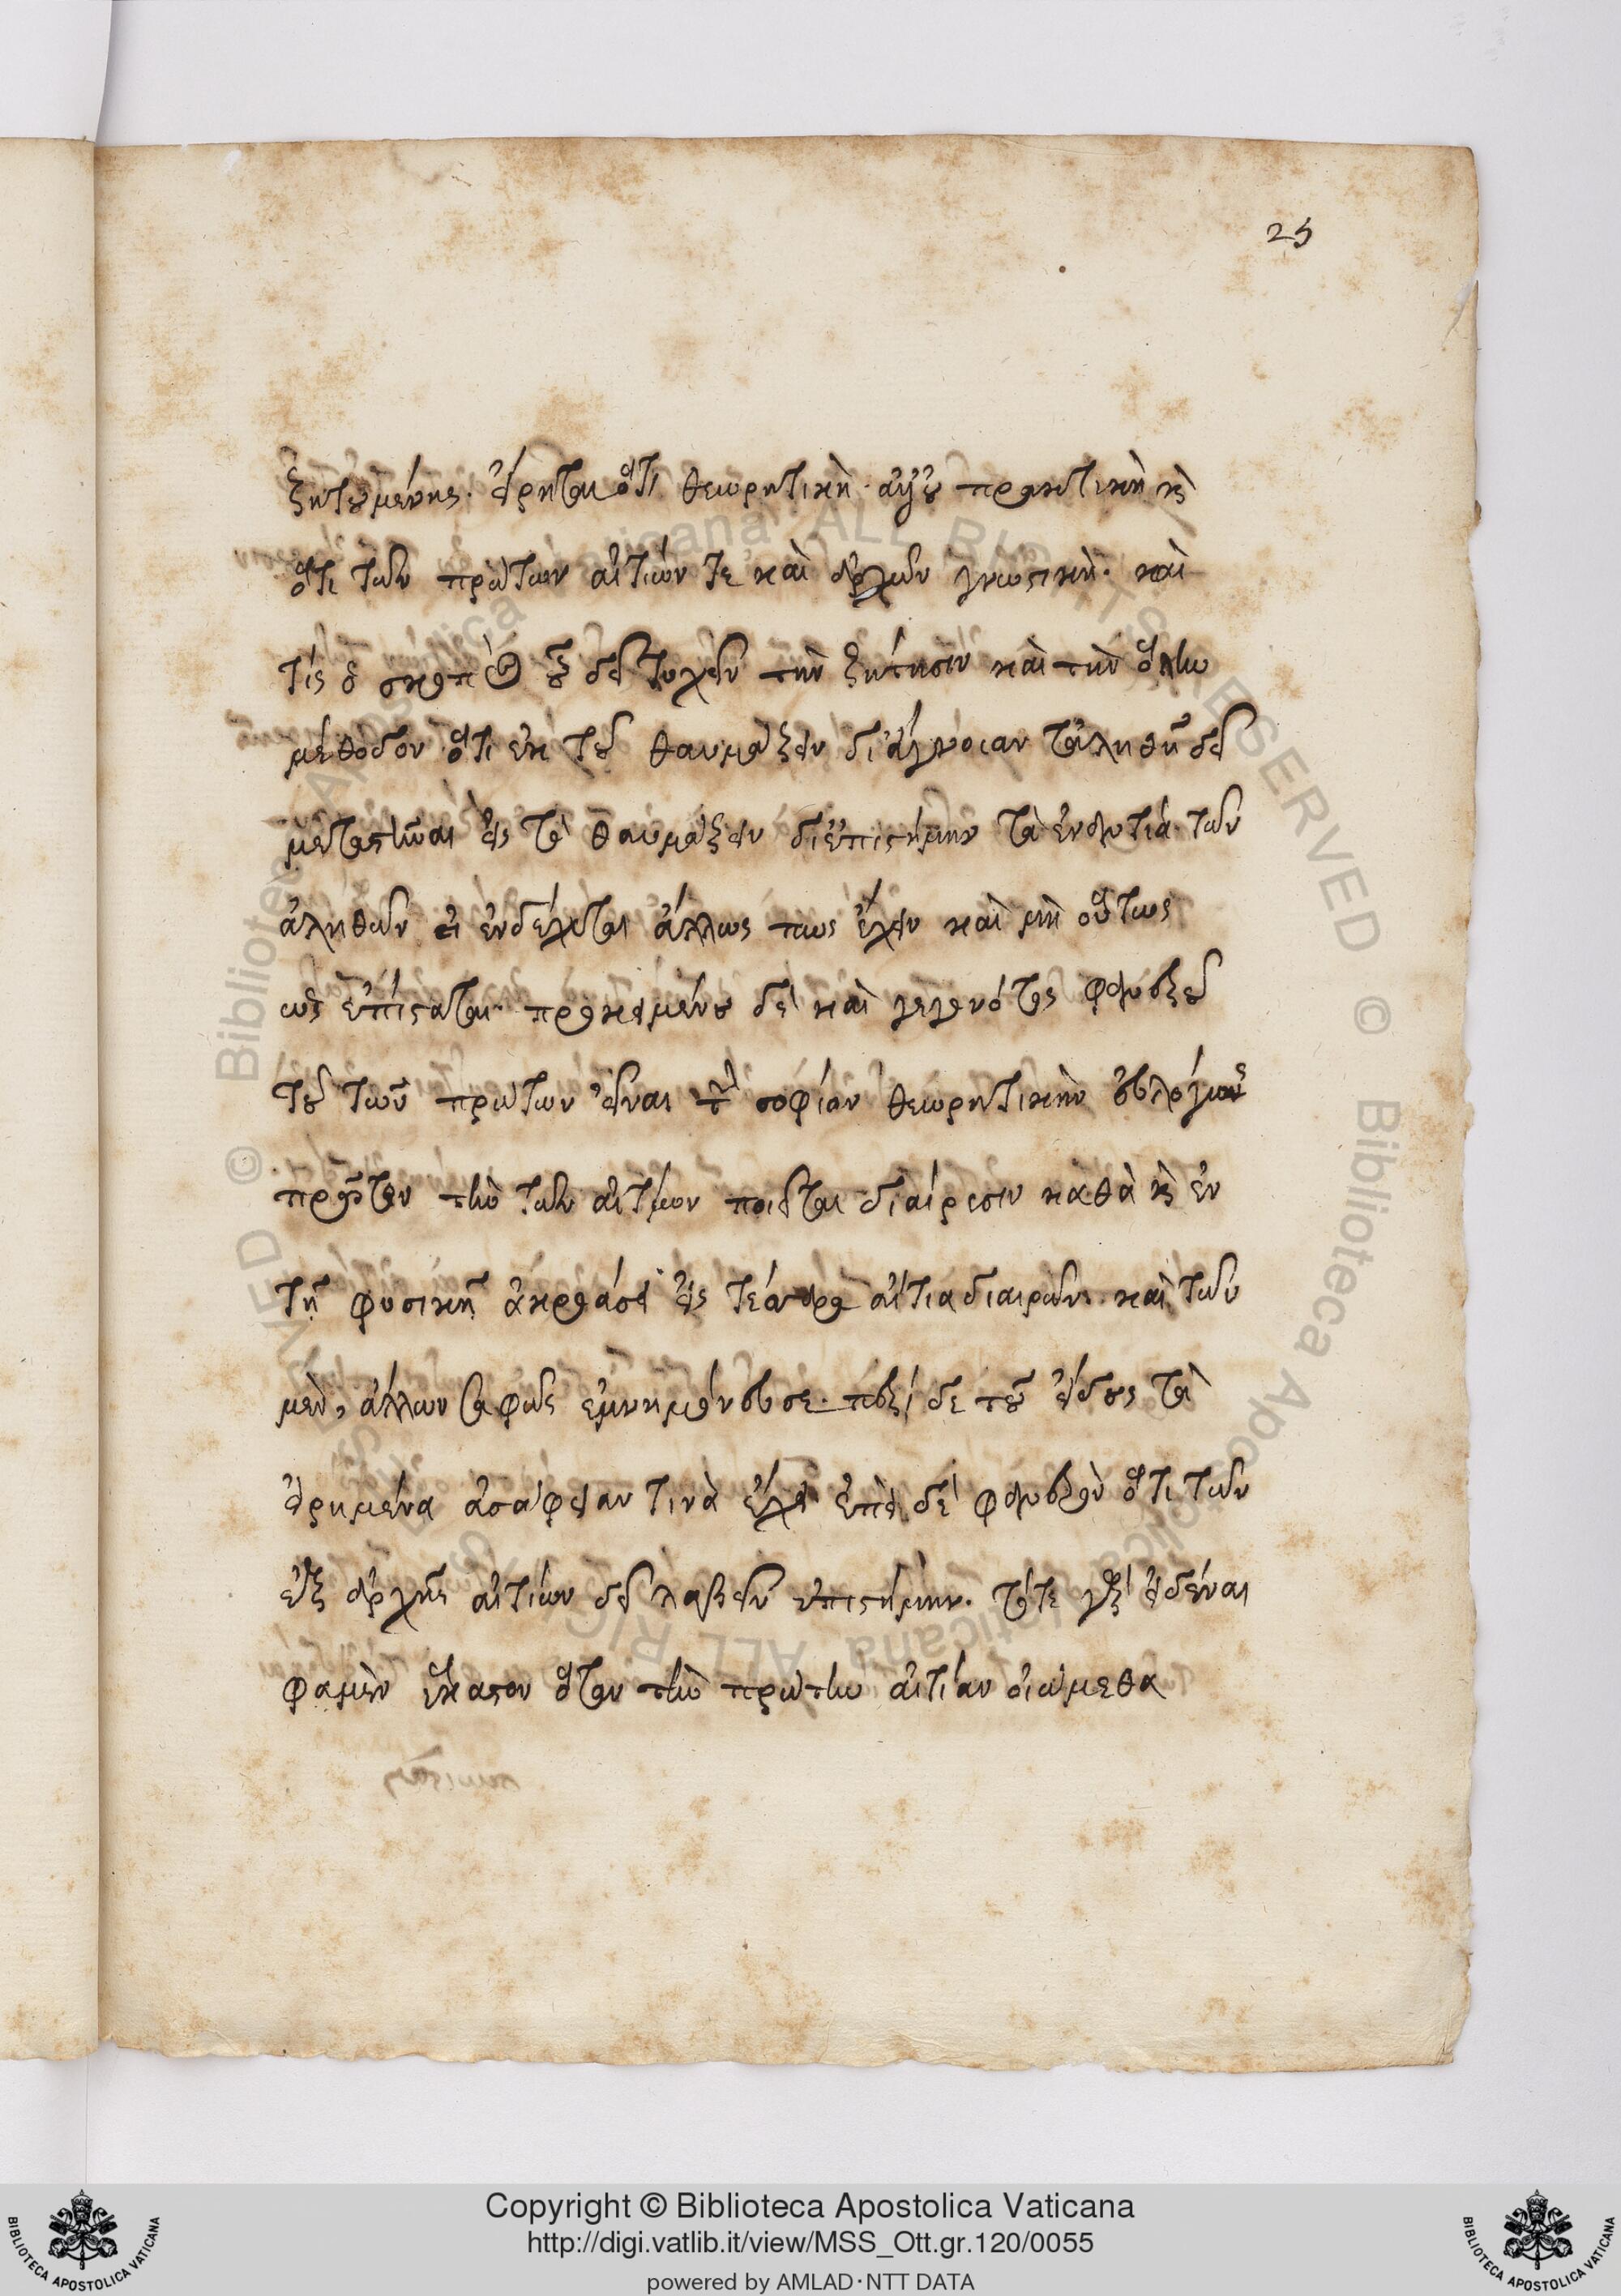 25
ζητουμένης. εἴρηται ὅτι θεωρητικὴ ἀλλ' οὐ πρακτικὴ καὶ
ὅτι τῶν πρώτων αἰτιῶν τε καὶ ἀρχῶν γνωστικὴ. καὶ
τίς ὁ σκοπὸς οὗ δεῖ τυχεῖν τὴν ζήτησιν καὶ τὴν ὅλην
μέθοδον ὅτι ἐκ τοῦ θαυμάζειν δι' ἄγνοιαν τἀληθῆ δεῖ
μεταστῆναι εἰς τὸ θαυμάζειν δι' ἐπιστήμην τὰ ἐναντία τῶν
ἀληθῶν εἰ ἐνδέχεται ἄλλως πως ἔχειν καὶ μὴ οὕτως
ὡς ἐπίσταται. προκειμένου δὲ καὶ γεγονότος φανεροῦ
τοῦ τῶν πρώτων εἶναι τὴν σοφίαν θεωρητικὴν εὐλόγως
πρῶτον τὴν τῶν αἰτίων ποιεῖται διαίρεσιν καθὰ καὶ ἐν
τῇ φυσικῇ ἀκροάσει εἰς τέσσαρα αἴτια διαιρῶν. καὶ τῶν
μὲν ἄλλων σαφῶς ἐμνημόνευσε. περὶ δὲ τοῦ εἴδους τὰ
εἰρημένα ἀσάφειαν τινὰ ἔχει ἐπεὶ δὲ φανερὸν ὅτι τῶν
ἐξ ἀρχῆς αἰτίων δεῖ λαβεῖν ἐπιστήμην. τότε γὰρ εἰδέναι
φαμὲν ἕκαστον ὅταν τὴν πρώτην αἰτίαν οἰώμεθα
Copyright © Biblioteca Apostolica Vaticana
http://digi.vatlib.it/view/MSS_Ott.gr.120/0055
powered by AMLAD·NTT DATA